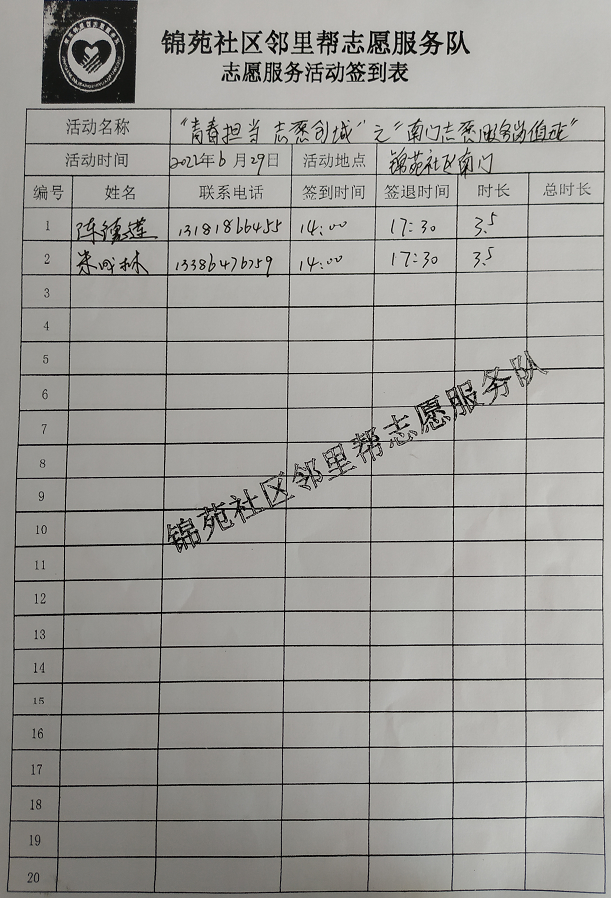 锦苑社区邻里帮志愿服务队
志愿服务活动签到表
活动名称 “青春担当 志愿创城”之“南门志愿服务岗值班”
活动时间 2022年6月29日 活动地点 锦苑社区南门
编号 姓名 联系电话 签到时间 签退时间 时长 总时长
1 陈德莲 13181866455 14:00 17:30 3.5
2 朱 林 13386476759 14:00 17:30 3.5
3
4
5
6
7
8
9
10
11
12
13
14
15
16
17
18
19
20
锦苑社区邻里帮志愿服务队